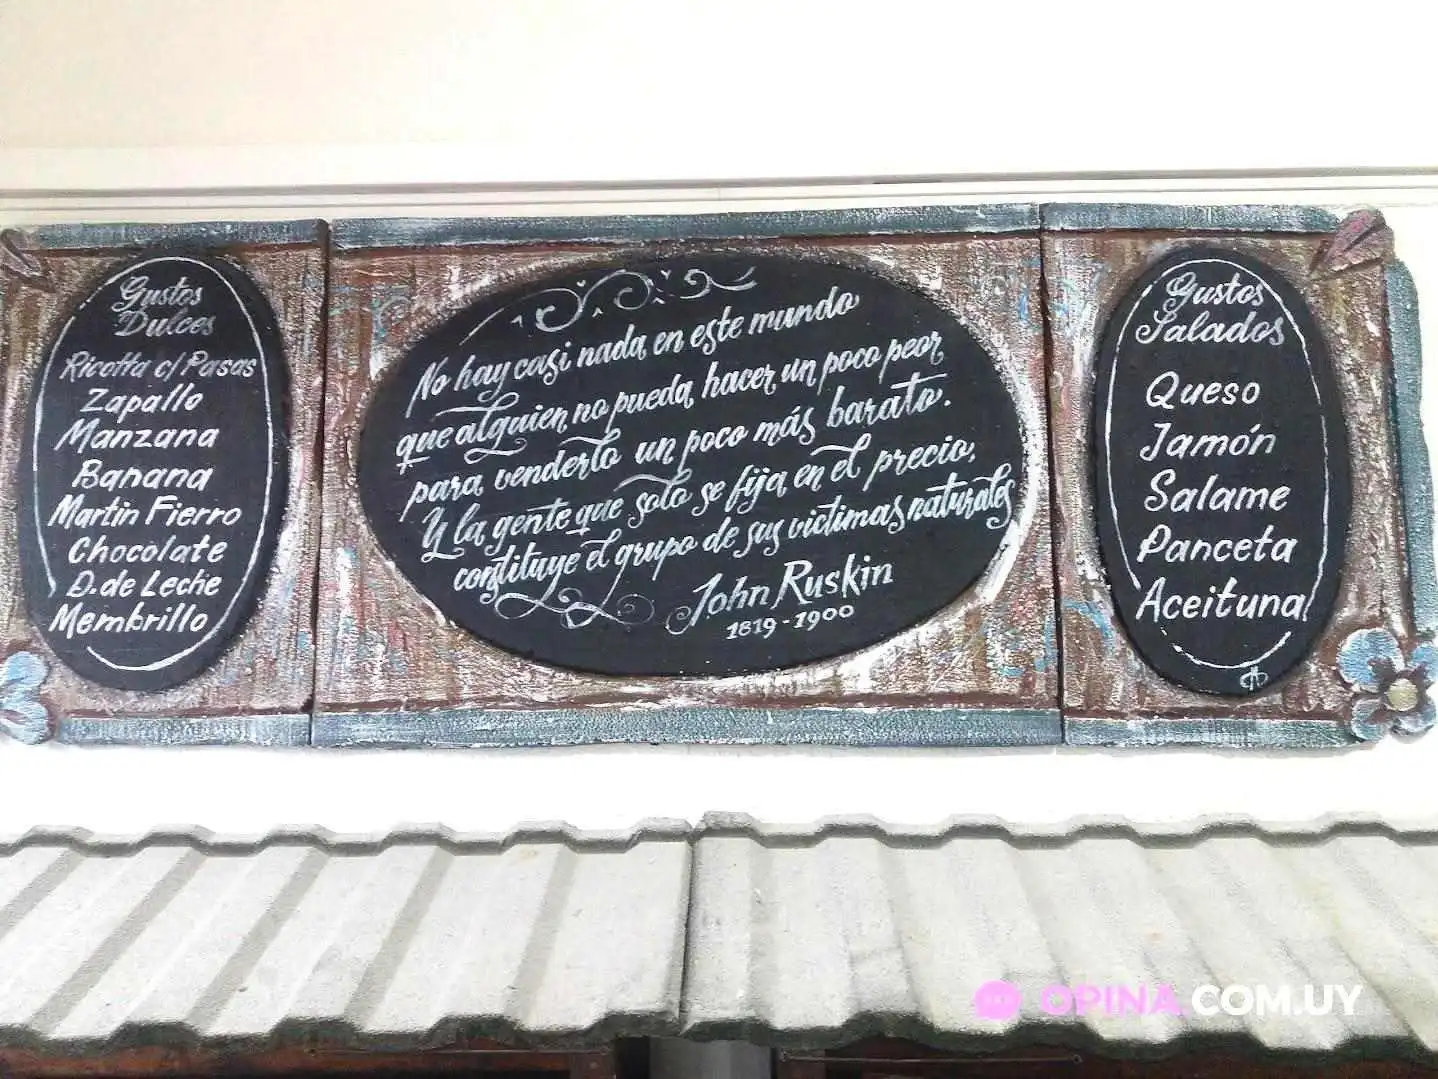 Gustos
Dulces
Ricotta c/ Pasas
Zapallo
Manzana
Banana
Martin Fierro
Chocolate
D. de Leche
Membrillo
No hay casi nada en este mundo
que alguien no pueda hacer un poco peor
para venderlo un poco más barato.
Y la gente que solo se fija en el precio,
constituye el grupo de sus victimas naturales
John Ruskin
1819-1900
Gustos
Salados
Queso
Jamón
Salame
Panceta
Aceituna
OPINA.COM.UY